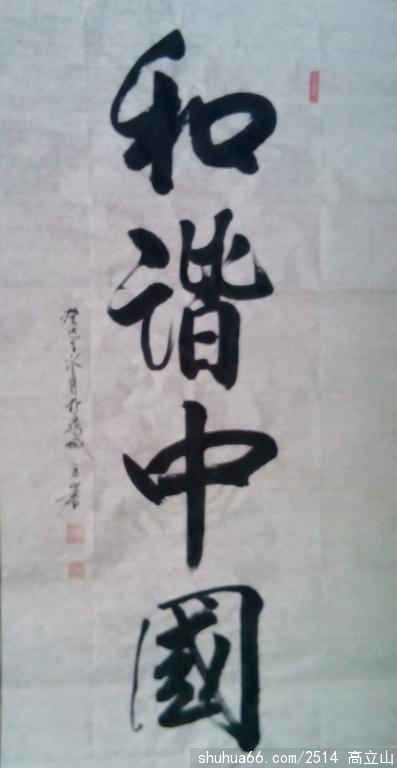 和谐中國
癸巳 月於 城 立山書
shuhua66.com/2514 高立山